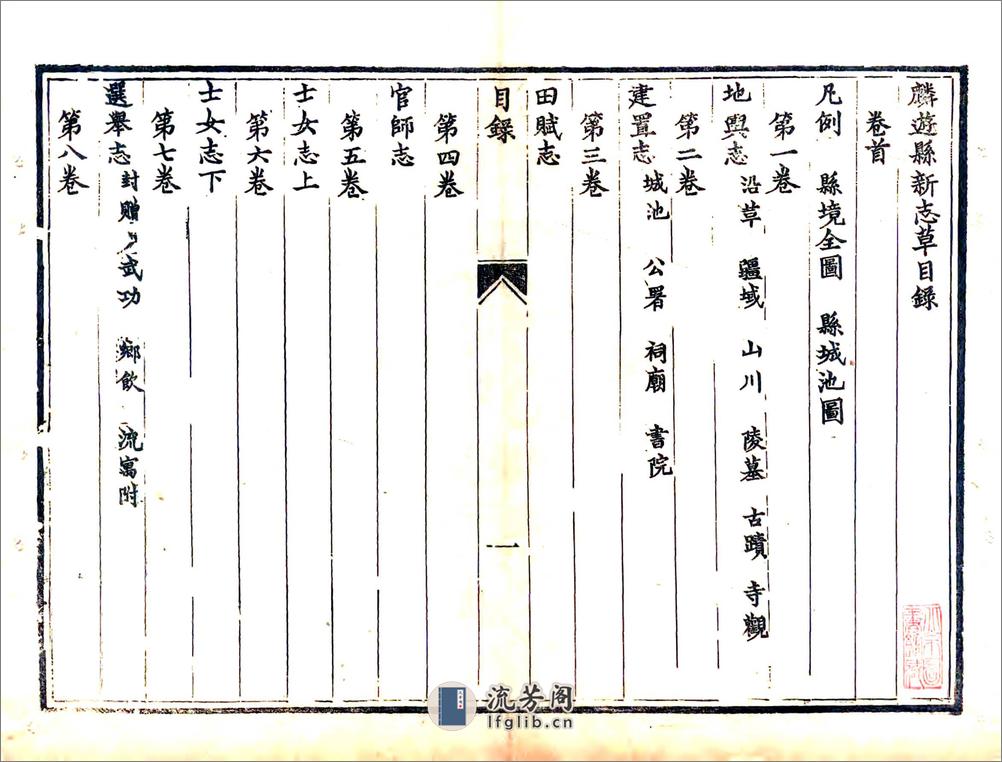 麟遊縣新志草目錄
卷首
凡例 縣境全圖 縣城池圖
第一卷
地輿志 沿革 疆域 山川 陵墓 古蹟 寺觀
第二卷
建置志 城池 公署 祠廟 書院
第三卷
田賦志
目錄
一
第四卷
官師志
第五卷
士女志上
第六卷
士女志下
第七卷
選舉志 封贈 武功 鄉飲 流寓附
第八卷
流芳阁
lfglib.cn